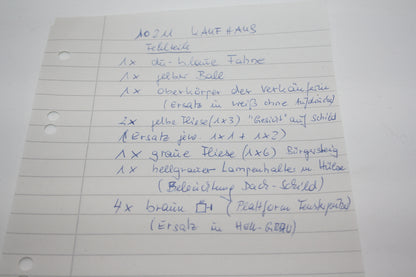 10211 KAUFHAUS
Fehlteile
1x blaue Fahne
1x gelber Ball
1x Oberkörper der Verkäuferin
(Ersatz in weiß ohne Aufdruck)
2x gelbe Fliese (1x3) "Gesicht" auf Schild
(Ersatz jew. 1x1 + 1x2)
1x graue Fliese (1x6) Bürgersteig
1x hellgrauer Lampenhalter in Hülse
(Beleuchtung Dach-Schild)
4x braun (Plattform Fensterputzer)
(Ersatz in Hell-Grau)